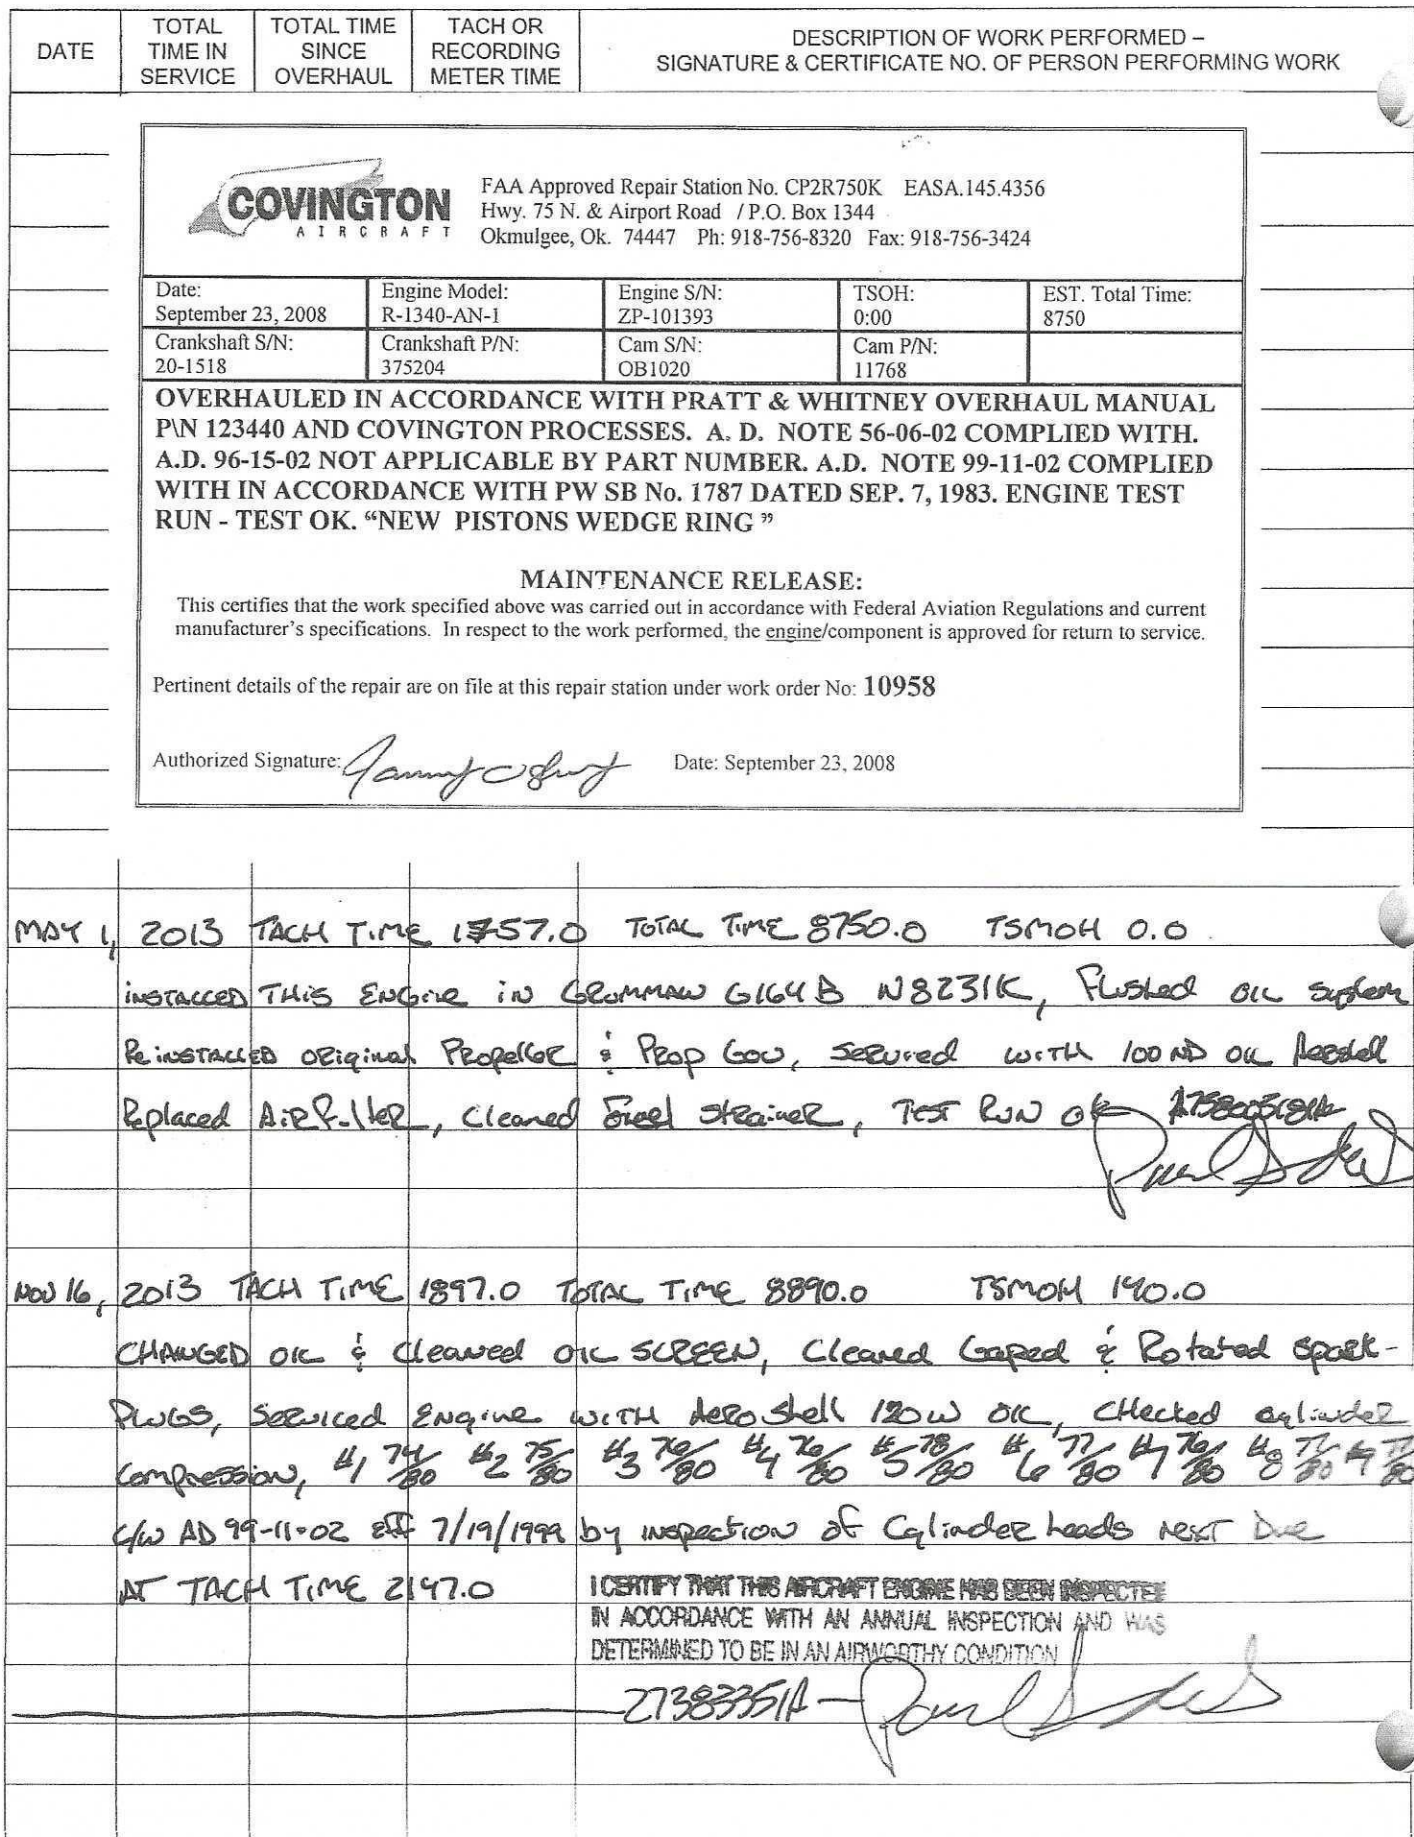 DATE
TOTAL TIME IN SERVICE
TOTAL TIME SINCE OVERHAUL
TACH OR RECORDING METER TIME
DESCRIPTION OF WORK PERFORMED –
SIGNATURE & CERTIFICATE NO. OF PERSON PERFORMING WORK
COVINGTON
AIRCRAFT
FAA Approved Repair Station No. CP2R750K EASA.145.4356
Hwy. 75 N. & Airport Road / P.O. Box 1344
Okmulgee, Ok. 74447 Ph: 918-756-8320 Fax: 918-756-3424
Date: Engine Model: Engine S/N: TSOH: EST. Total Time:
September 23, 2008 R-1340-AN-1 ZP-101393 0:00 8750
Crankshaft S/N: Crankshaft P/N: Cam S/N: Cam P/N:
20-1518 375204 OB1020 11768
OVERHAULED IN ACCORDANCE WITH PRATT & WHITNEY OVERHAUL MANUAL
P\N 123440 AND COVINGTON PROCESSES. A. D. NOTE 56-06-02 COMPLIED WITH.
A.D. 96-15-02 NOT APPLICABLE BY PART NUMBER. A.D. NOTE 99-11-02 COMPLIED
WITH IN ACCORDANCE WITH PW SB No. 1787 DATED SEP. 7, 1983. ENGINE TEST
RUN - TEST OK. “NEW PISTONS WEDGE RING ”
MAINTENANCE RELEASE:
This certifies that the work specified above was carried out in accordance with Federal Aviation Regulations and current
manufacturer's specifications. In respect to the work performed, the engine/component is approved for return to service.
Pertinent details of the repair are on file at this repair station under work order No: 10958
Authorized Signature: Date: September 23, 2008
MAY 1, 2013 TACH TIME 1757.0 TOTAL TIME 8750.0 TSMOH 0.0
INSTALLED THIS ENGINE IN GRUMMAN G164B N8231K, Flushed OIL System
ReINSTALLED ORiginal Propeller & Prop Gov, Serviced WITH 100 ND OIL Aeroshell
Replaced AiRFilter, Cleaned Fuel StRaineR, TEST RUN OK
NOV 16, 2013 TACH TIME 1897.0 TOTAL TIME 8890.0 TSMOH 140.0
CHANGED OIL & Cleaned OIL SCREEN, Cleaned Gaped & Rotated Spark-
PLUGS, Serviced Engine WITH AeroShell 120W OIL, CHecked cylinder
Compression, #1 74/80 #2 75/80 #3 76/80 #4 76/80 #5 78/80 #6 77/80 #7 76/80 #8 77/80 #9 77/80
C/W AD 99-11-02 Eff 7/19/1999 by inspection of Cylinder heads Next Due
AT TACH TIME 2147.0
I CERTIFY THAT THIS AIRCRAFT ENGINE HAS BEEN INSPECTED
IN ACCORDANCE WITH AN ANNUAL INSPECTION AND WAS
DETERMINED TO BE IN AN AIRWORTHY CONDITION
2738335IA